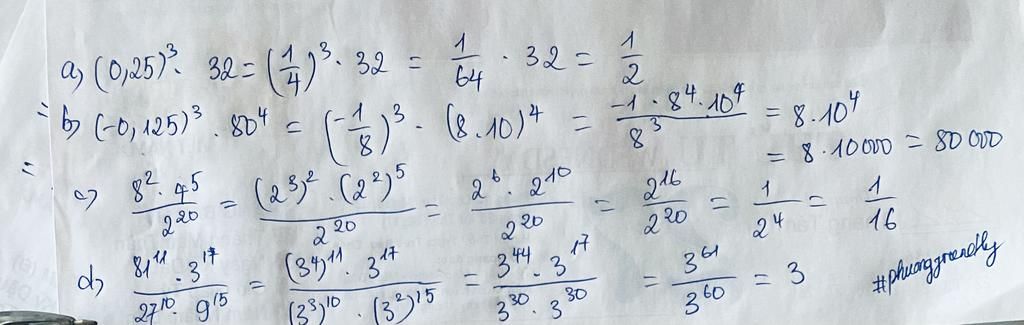 a) (0,25)³ · 32 = (1/4)³ · 32 = 1/64 · 32 = 1/2
= b) (-0,125)³ · 80⁴ = (-1/8)³ · (8.10)⁴ = (-1 · 8⁴ · 10⁴)/8³ = 8.10⁴
= = 8.10000 = 80000
c) (8² · 4⁵)/2²⁰ = ((2³)² · (2²)⁵)/2²⁰ = (2⁶ · 2¹⁰)/2²⁰ = 2¹⁶/2²⁰ = 1/2⁴ = 1/16
d) (81¹¹ · 3¹⁷)/(27¹⁰ · 9¹⁵) = ((3⁴)¹¹ · 3¹⁷)/((3³)¹⁰ · (3²)¹⁵) = (3⁴⁴ · 3¹⁷)/(3³⁰ · 3³⁰) = 3⁶¹/3⁶⁰ = 3